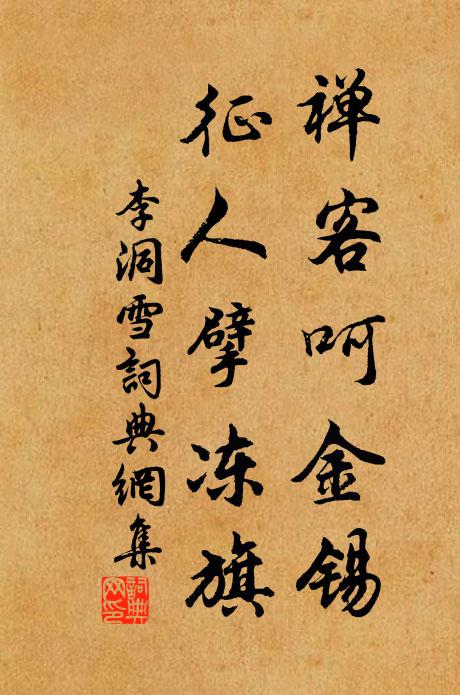 禅客呵金锡
征人擘冻旗
李洞雪詞典網集
詞典网印